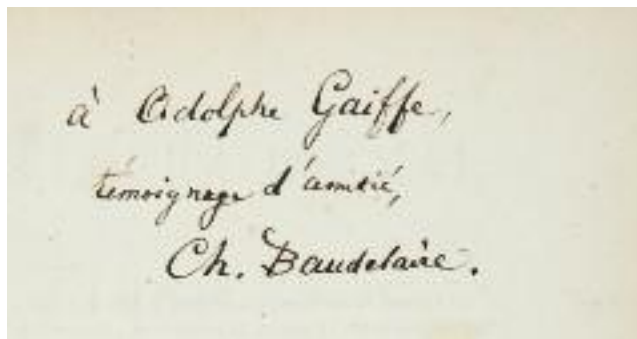 à Adolphe Gaiffe,
témoignage d'amitié,
Ch. Baudelaire.